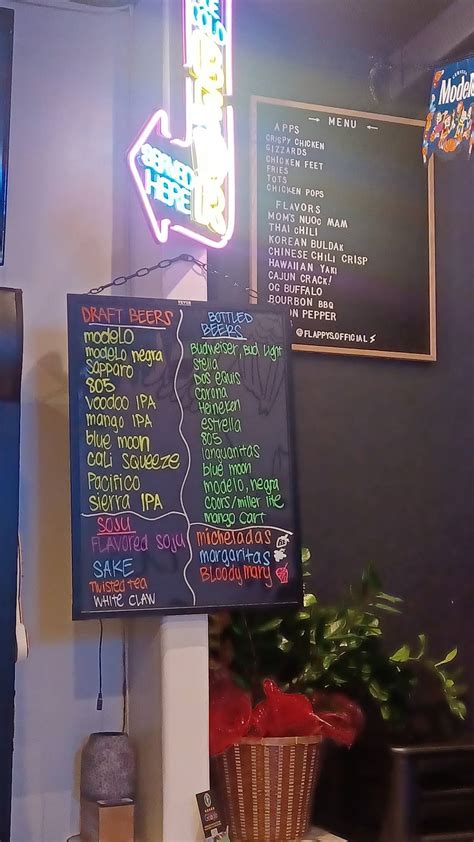 COLD
SERVED
HERE
Modelo
MENU
APPS
CRISPY CHICKEN
GIZZARDS
CHICKEN FEET
FRIES
TOTS
CHICKEN POPS
FLAVORS
MOM'S NUOC MAM
THAI CHILI
KOREAN BULDAK
CHINESE CHILI CRISP
HAWAIIAN YAKI
CAJUN CRACK!
OG BUFFALO
BOURBON BBQ
ON PEPPER
@FLAPPYS.OFFICIAL
DRAFT BEERS
modelo
modelo negra
Sapparo
805
voodoo IPA
mango IPA
blue moon
cali squeeze
Pacifico
Sierra IPA
BOTTLED
BEERS
Budweiser, Bud light
Stella
Dos equis
corona
Heineken
estrella
805
longuanitas
blue moon
modelo, negra
coors/miller lite
mango cart
SOJU
FLAVORED SOJU
SAKE
TWISTED TEA
WHITE CLAW
micheladas
margaritas
BLOODY MARY